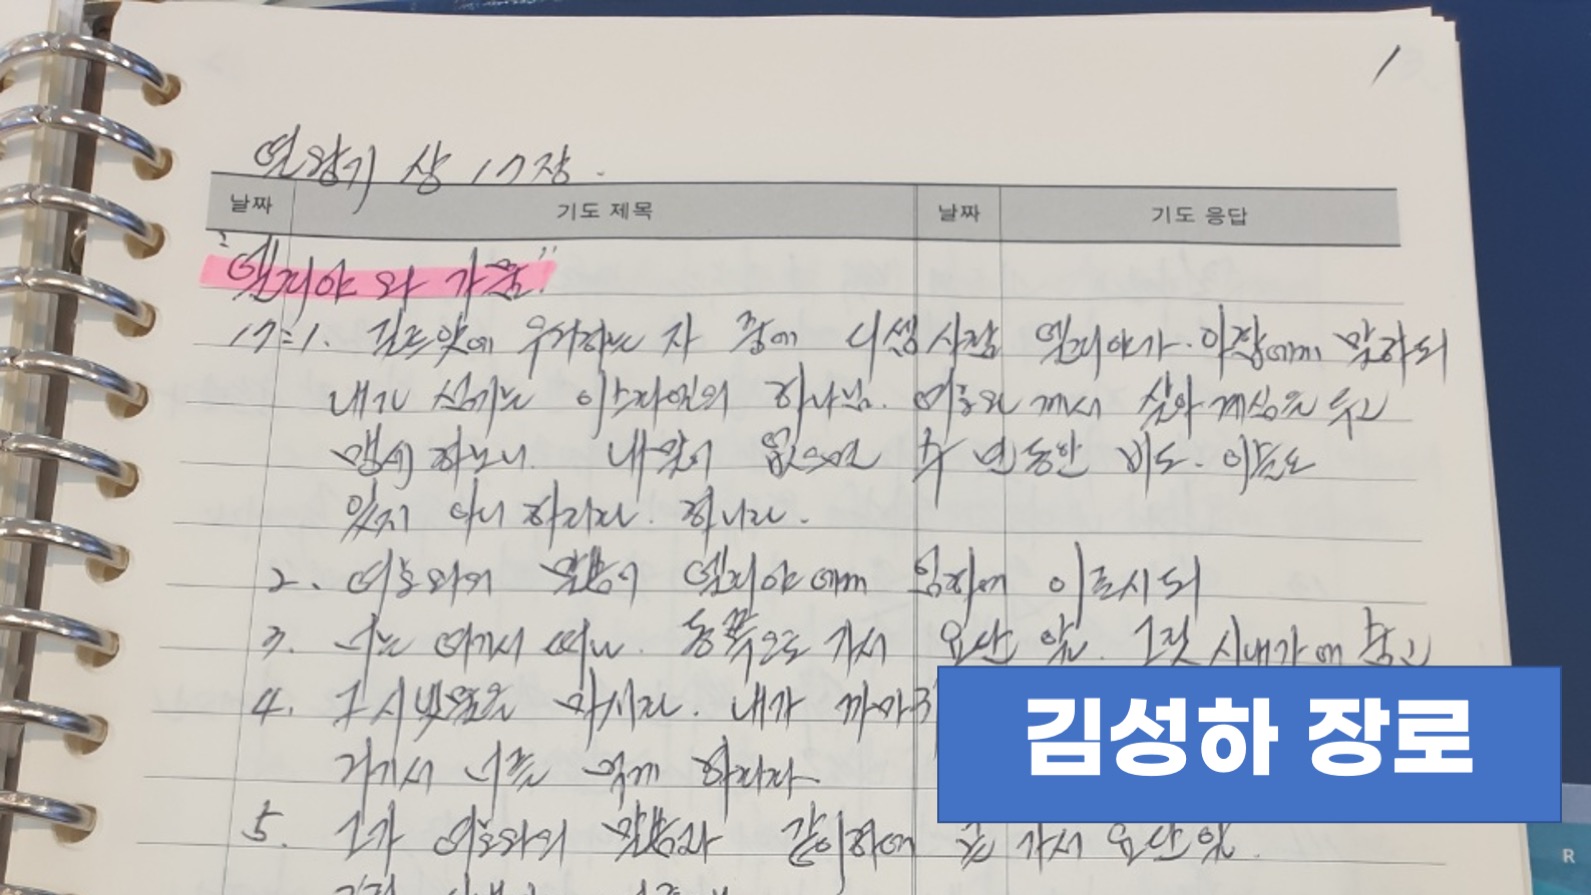 열왕기 상 17장.
날짜 기도 제목 날짜 기도 응답
"엘리야 와 가뭄"
17:1. 길르앗에 우거하는 자 중에 디셉사람 엘리야가. 아합에게 말하되
내가 섬기는 이스라엘의 하나님. 여호와 께서 살아계심을 두고
맹세 하노니. 내 말이 없으면 수 년 동안 비도. 이슬도
있지 아니 하리라. 하니라.
2. 여호와의 말씀이 엘리야에게 임하여 이르시되
3. 너는 여기서 떠나. 동쪽으로 가서 요단 앞. 그릿 시내가에 숨고
4. 그 시냇물을 마시라. 내가 까마귀
거기서 너를 먹게 하리라
5. 그가 여호와의 말씀과 같이하여 곧 가서 요단 앞.
김성하 장로
R